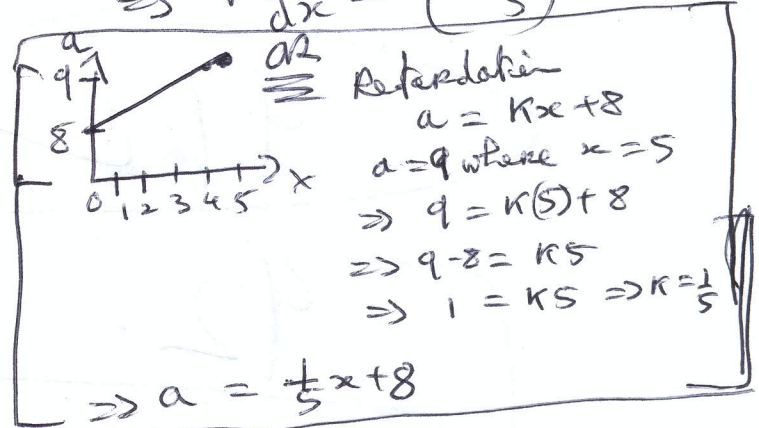 ⇒
dx
5
a
9
8
0 1 2 3 4 5
x
OR
Retardation
a = Kx + 8
a = 9 where x = 5
⇒ 9 = K(5) + 8
⇒ 9 - 8 = K5
⇒ 1 = K5 ⇒ K = 1/5
⇒ a = 1/5 x + 8